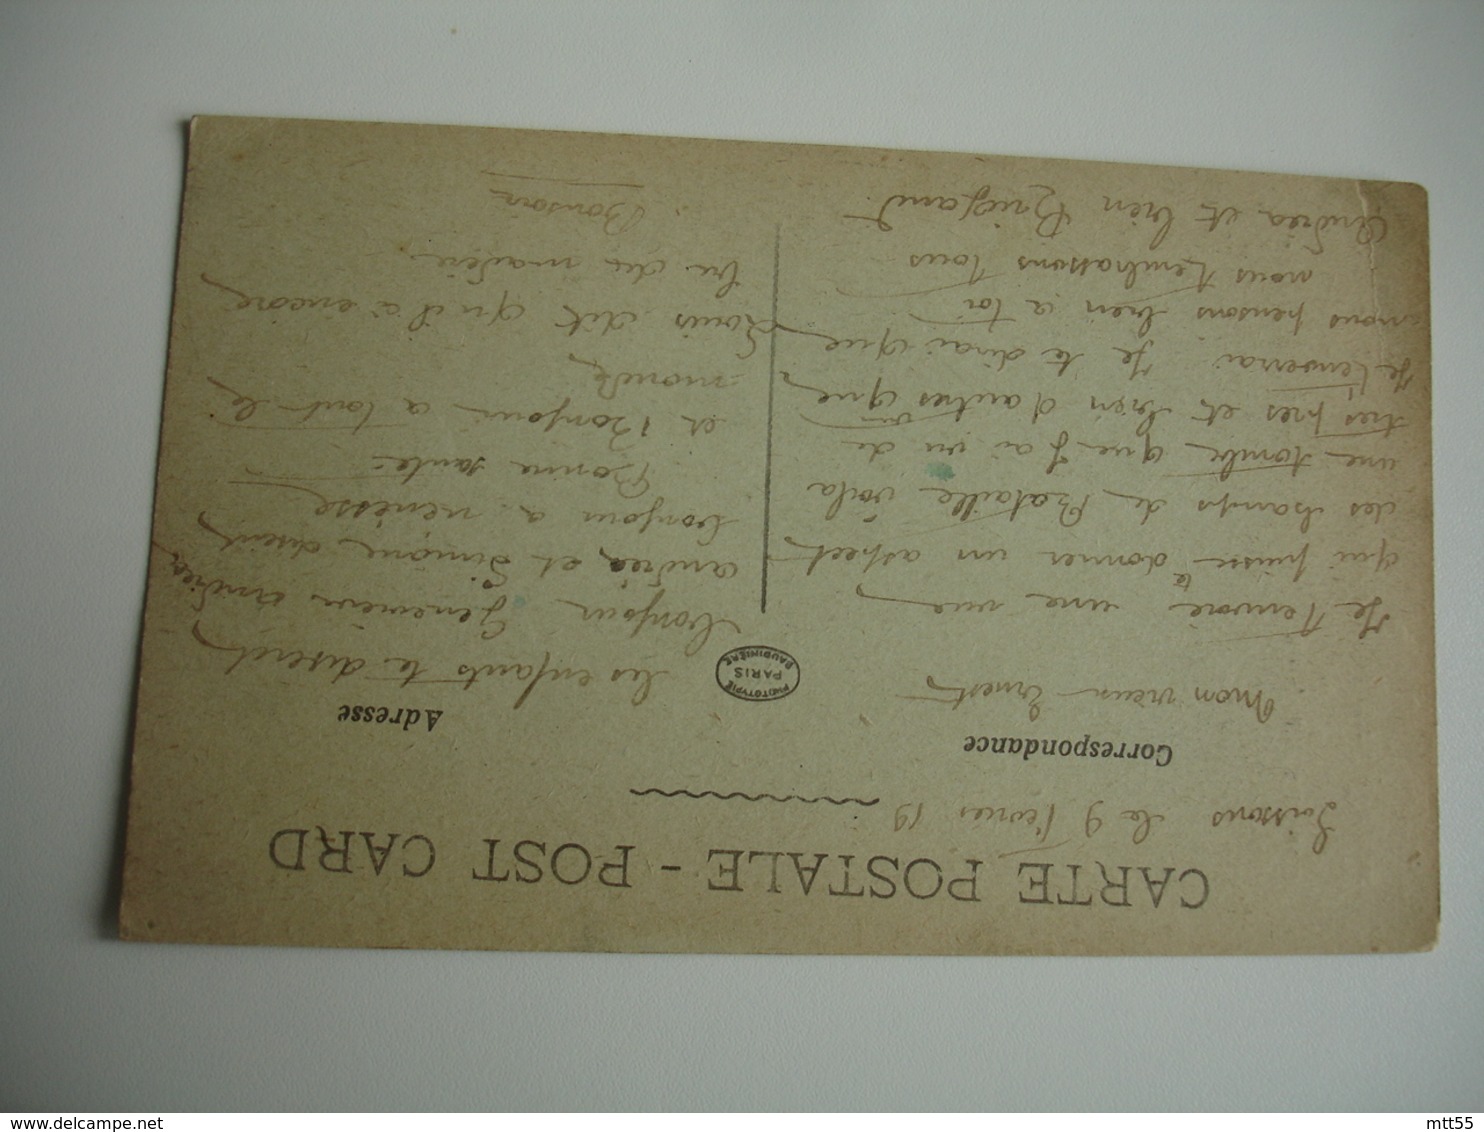 CARTE POSTALE - POST CARD
Soissons le 9 fevrier 19
Correspondance
Mon vieux Ernest
Je t'envoie une vue
qui puisse te donner un aspect
des champs de Bataille voila
une tombe que j'ai vu de
très près et bien d'autres que
je t'enverrai je te dirai que
nous pensons bien a toi
nous t'embrassons tous
Andrea et bien Brigland
PHOTOTYPIE
PARIS
BAUDINIÈRE
Adresse
Les enfants te disent
bonjour Genevieve andrée
andréa et Simone disent
bonjour a nenesse
Bonne santé
et Bonjour a tout le
monde
Louis dit qu'il a encore
bu du madère
Bonsoir
mtt55